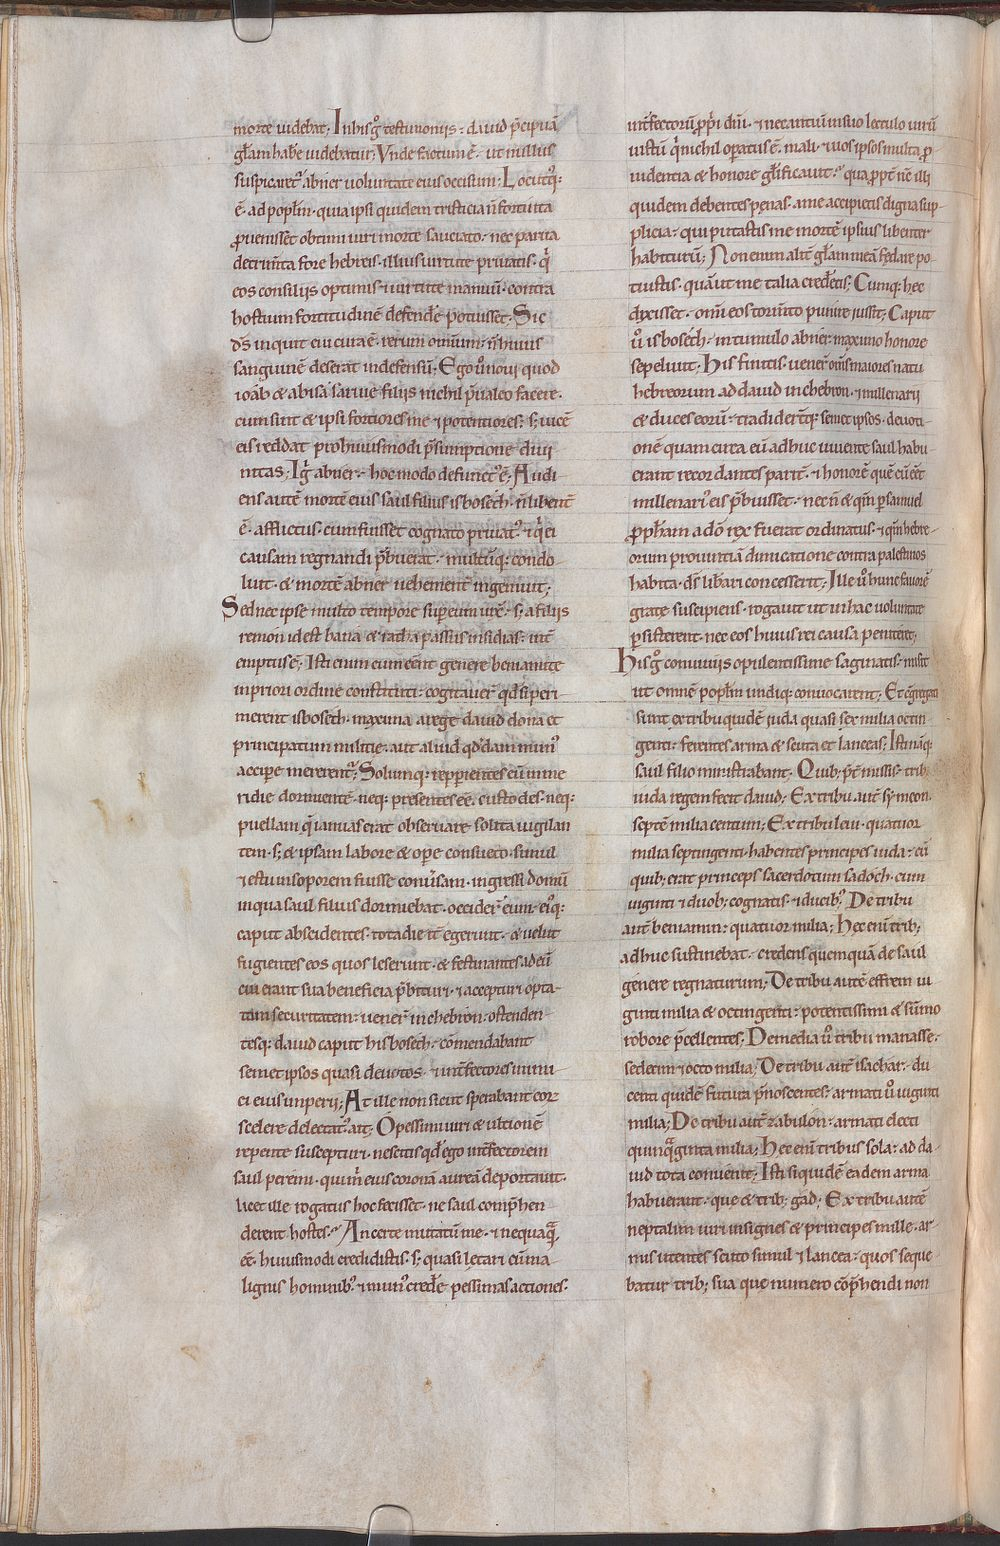 morte uidebat; Inhisg͛ testimoniis · dauid p̄cipuā
gl̄am hab̄e uidebatur; Vnde factum ē · ut nullus
suspicaret᷑ abner uoluntate eius occisum; Locutꝰq;
ē · ad popl̄m · quia ipsi quidem tristicia n̄ fortuita
ꝓuenisset obtimi uiri morte sauciato · nec parua
detrim̄ta fore hebreis · illius uirtute priuatis · q͛
eos consiliis optimis · uirtute manuū · contra
hostium fortitudinē defend̄e potuisset; Sic
d̄s inquit cui cura ē · rerum omnium · n̄ huius
sanguinē deserat indefensū; Ego u̇̄ noui quod
ioāb & abisa saruie filiis nichil p̄ualeo facere ·
cum sint & ipsi fortiores me ⁊ potentiores · s; uicē
eis reddat pro huiusmodi p̄sumptione diui
nitas; Ig͛ abner · hoc modo defunctꝰ ē; Audi
ens autē mortē eius saul filius isbosech · n̄ libent᷑
ē · afflictus · cum fuisset cognato priuatꝰ · ⁊ q͛ ei
causam regnandi p̄buerat · multūq; condo
luit · & mortē abner uehement᷑ ingemuit;
Sed nec ipse multo tempore sup̲eum uix̄ · s; a filiis
remōn id est bana & racha passus insidias · int᷑
emptus ē · Isti enim cum eēnt genere beniamite
in priori ordine constituti · cogitauer̄ qd̄ si peri
merent isbosech · maxima a rege dauid dona et
principatum militie · aut aliud qd̄dam munꝰ
accip̲e mererent᷑; Solumq; repperientes eū in me
ridie dormientē · neq; presentes eē · custodes · neq;
puellam q̄ ianuas erat obseruare solita uigilan
tem · s; & ipsam labore & op̲e consueto · simul
⁊ estu in soporem fuisse conūsam · ingressi domū
in qua saul filius dormiebat · occider̄t eum · eiꝰq;
caput abscidentes · tota die it᷑ egerunt · & uelut
fugientes eos quos leserunt · & festinantes ad eū
cui erant sua beneficia p̄bituri · ⁊ accepturi opta-
tam securitatem · uener̄ in chebron · ostenden-
tesq; dauid caput hisbosech · cōmendabant
semet ipsos quasi deuotos · & int᷑fectores inimi-
ci eius imperii; At ille non sicut sperabant eoꝝ
scelere delectatꝰ · ait; O pessimi uiri & ultionē
repente suscepturi · nescitis qd̄ ego int᷑fectorem
saul peremi · qui m͛ eius coronā aureā deportauit ·
licet ille rogatus hoc fecisset · ne saul comp̄hen
derent hostes · An certe mutatū me · ⁊ nequaq̄
eē · huiusmodi credidistis · s; quasi letari cū ma-
lignis hominibꝰ · ⁊ munꝰ cred̄e pessimas actiones ·
int᷑fectorū ꝓprii dn̄i · ⁊ necantiū in suo lectulo uirū
iustū q͛ nichil operatus ē · mali · ⁊ uos ipsos multa ꝓ-
uidentia & honore gl̄ificauit · qua ꝓpt᷑ n̄c illi
quidem debentes pęnas · a me accipietis digna sup-
plicia · qui putastis me mortē ipsius libenter
habiturū; Non enim alit᷑ gl̄am meā fędare po-
tuistis · quā ut me talia cred̄etis; Cumq; hęc
dixisset · om̄i eos torm̄to punire iussit; Caput
u̇̄ isbosech · in tumulo abner · maximo honore
sepeliuit; His finitis · uener̄ om̄s maiores natu
hebreorum ad dauid in chebron · ⁊ millenarii
& duces eorū · tradider̄tq; semet ipsos · deuoti-
onē quam circa eū adhuc uiuente saul habu
erant recordantes parit᷑ · ⁊ honorē quē cū eēt
millenari᷑ eis p̄buisset · nec n̄ & q̄m p̲ samuel
ꝓph̄am a dō rex fuerat ordinatus · ⁊ q̄m hebre-
orum prouintiā dimicatione contra palestinos
habita · d̄s lib̲ari concesserit; Ille u̇̄ hunc fauorē
grate suscipiens · rogauit ut in hac uoluntate
p̲sisterent · nec eos huius rei causa peniteret;
Hisg͛ conuiuiis opulentissime saginatis · misit
ut omnē popl̄m undiq; conuocarent; Et cg̅regati
sunt ex tribu quidē iuda quasi sex milia octin-
genti · ferentes arma & scuta et lanceas; Isti nāq;
saul filio ministrabant · Quib; p̄t᷑missis · trib;
iuda regem fecit dauid; Ex tribu aut᷑ symeon ·
septē milia centum; Ex tribu leui · quatuor
milia septingenti · habentes principes iuda · cū
quib; erat princeps sacerdotum sadoch · cum
uiginti ⁊ duob; cognatis · ⁊ ducibꝰ; De tribu
aut᷑ beniamin · quatuor milia; Hęc eni᷑ trib;
adhuc sustinebat · credens quemquā de saul
genere regnaturum; De tribu autē effrem ui
ginti milia & octingenti · potentissimi & sūmo
robore p̄cellentes; De media u̇̄ tribu manasse ·
sedecim ⁊ octo milia; De tribu aut᷑ isachar · du
centi quidē futura p̄noscentes · armati u̇̄ uiginti
milia; De tribu aut᷑ zabulōn · armati electi
quinq̄ginta milia; Hęc eni᷑ tribus sola · ad da-
uid tota conuenit; Isti siquidē eadem arma
habuerant · que & trib; gad; Ex tribu autē
neptalim uiri insignes & principes mille · ar-
mis utentes scuto simul ⁊ lancea · quos seque-
batur trib; sua que numero cōp̄hendi non